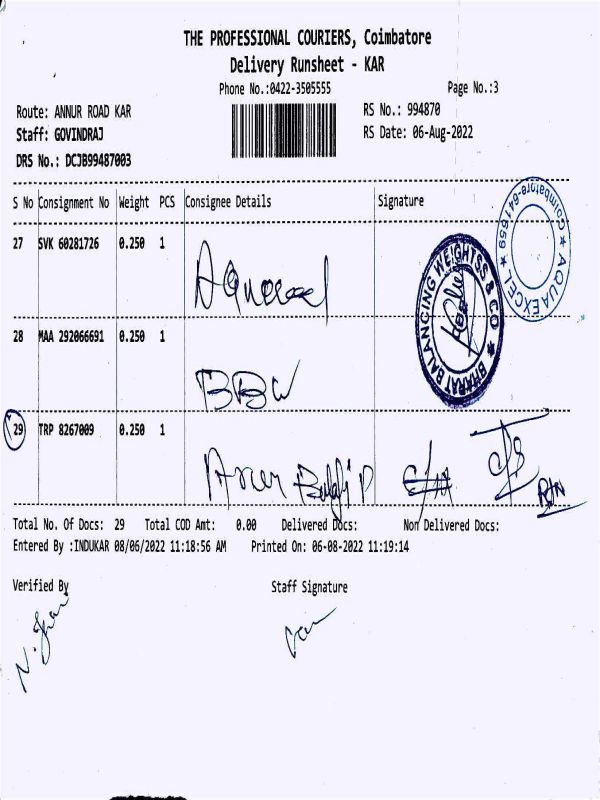 THE PROFESSIONAL COURIERS, Coimbatore
Delivery Runsheet - KAR
Phone No.:0422-3505555
Page No.:3
Route: ANNUR ROAD KAR
RS No.: 994870
Staff: GOVINDRAJ
RS Date: 06-Aug-2022
DRS No.: DCJB99487003
S No Consignment No Weight PCS Consignee Details Signature
27 SVK 60281726 0.250 1
AQUA EXCEL ★ Coimbatore-641659 ★
BHARAT BALANCING WEIGHTSS & CO ★
28 MAA 292066691 0.250 1
BBW
29 TRP 8267009 0.250 1
RTN
Total No. Of Docs: 29 Total COD Amt: 0.00 Delivered Docs: Non Delivered Docs:
Entered By :INDUKAR 08/06/2022 11:18:56 AM Printed On: 06-08-2022 11:19:14
Verified By Staff Signature